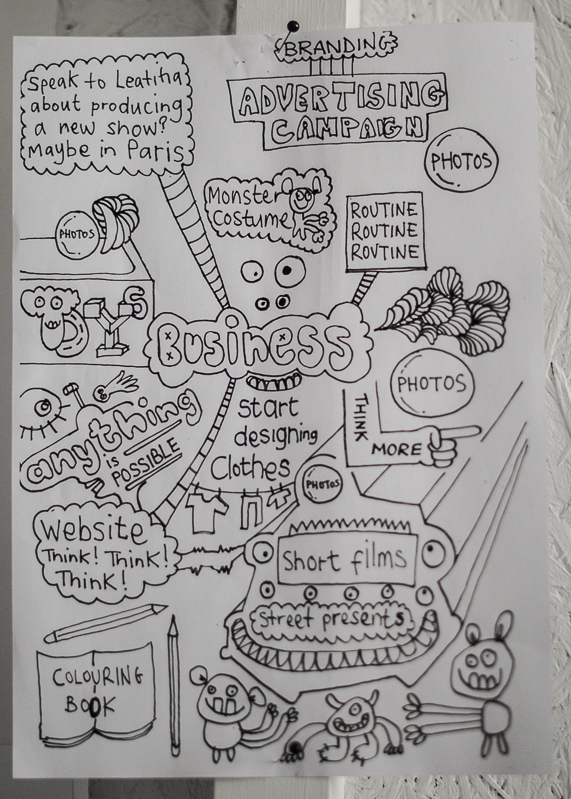 BRANDING
ADVERTISING
CAMPAIGN
Speak to
about producing
a new show?
Maybe in Paris
PHOTOS
Monster
Costume
ROUTINE
ROUTINE
ROUTINE
PHOTOS
BUSINESS
PHOTOS
anything
IS
POSSIBLE
Start
designing
Clothes
THINK
MORE
PHOTOS
Website
Think! Think!
Think!
Short films
Street presents
COLOURING
BOOK